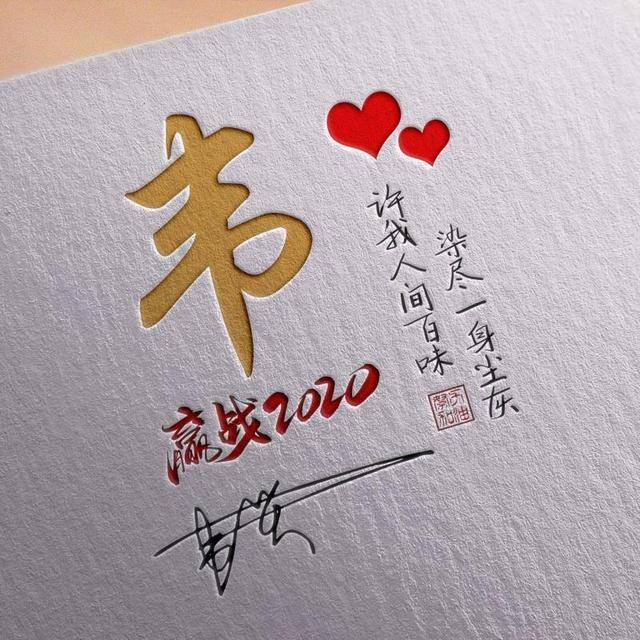 韦
许我人间百味
染尽一身尘灰
赢战2020